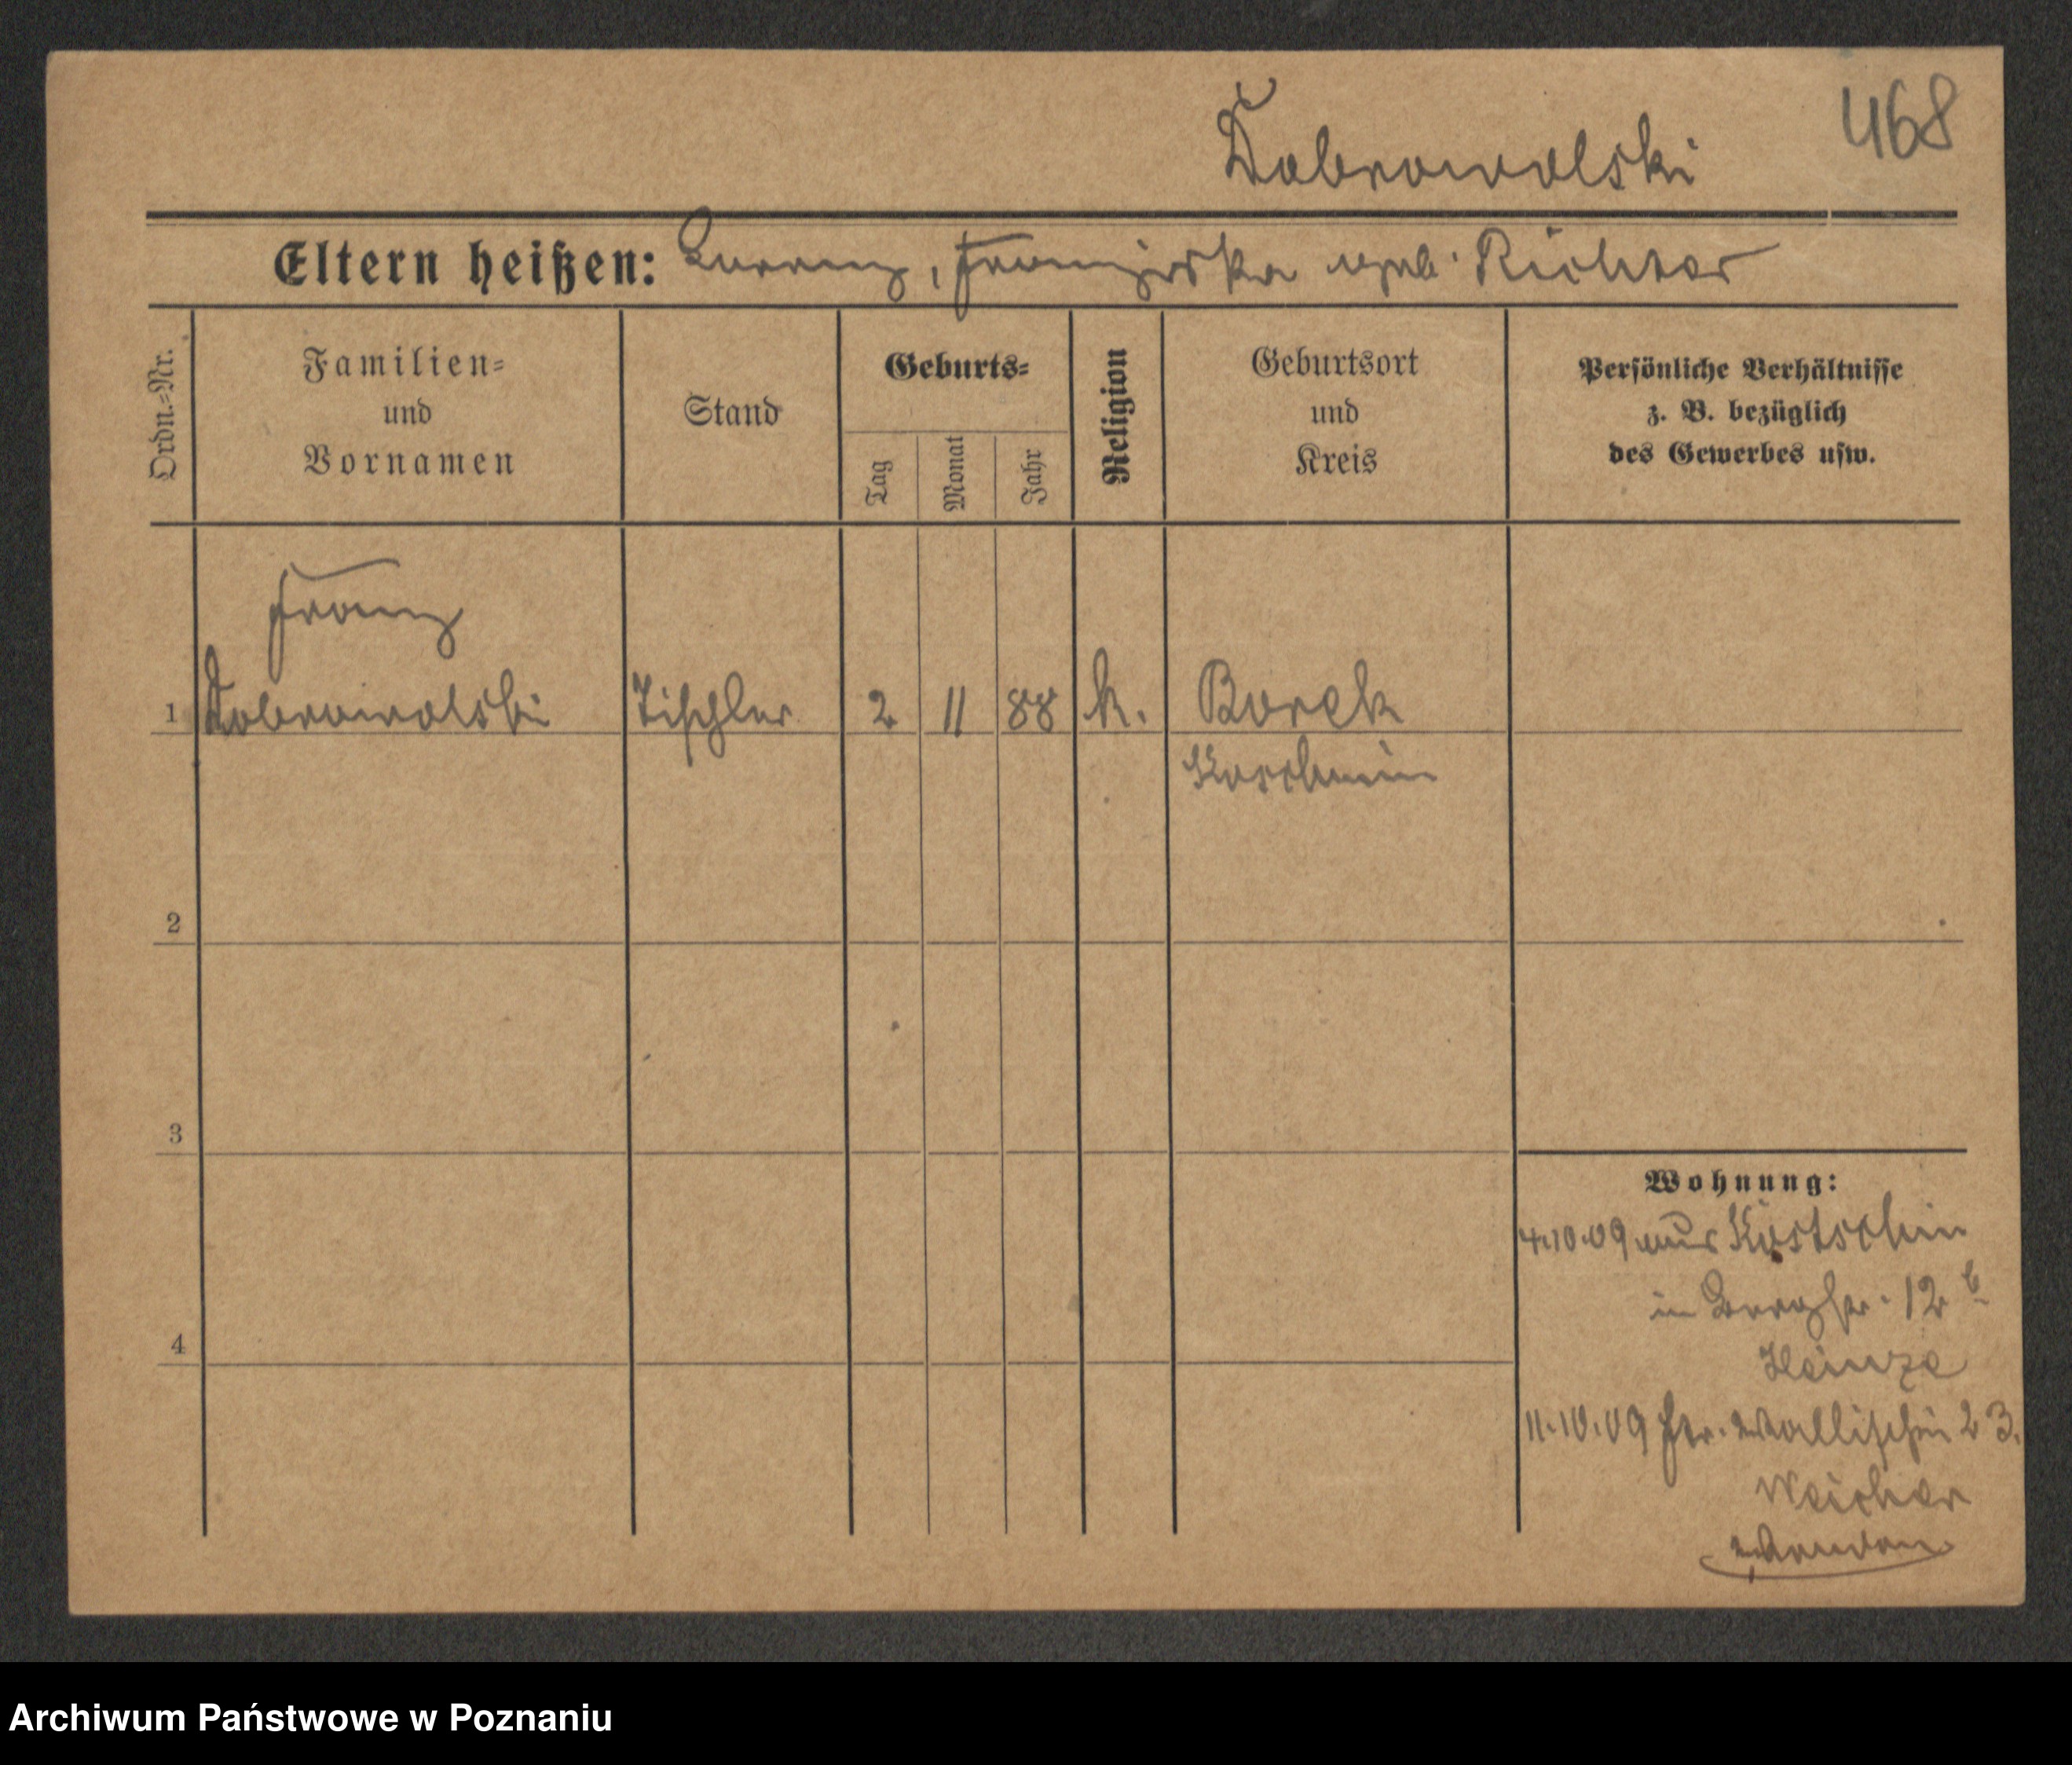 468
Dobrowolski
Eltern heißen: Lorenz, Franziska geb. Richter
Ordn.-Nr.
Familien-
und
Vornamen
Stand
Geburts-
Tag
Monat
Jahr
Religion
Geburtsort
und
Kreis
Persönliche Verhältnisse
z. B. bezüglich
des Gewerbes usw.
Franz
1 Dobrowolski Tischler 2 11 88 k. Borek
Koschmin
2
3
4
Wohnung:
4.10.09 aus Kostschin
in Bergstr. 12 b
Heinze
11.10.09 Wallischei 23.
Weicher
Archiwum Państwowe w Poznaniu